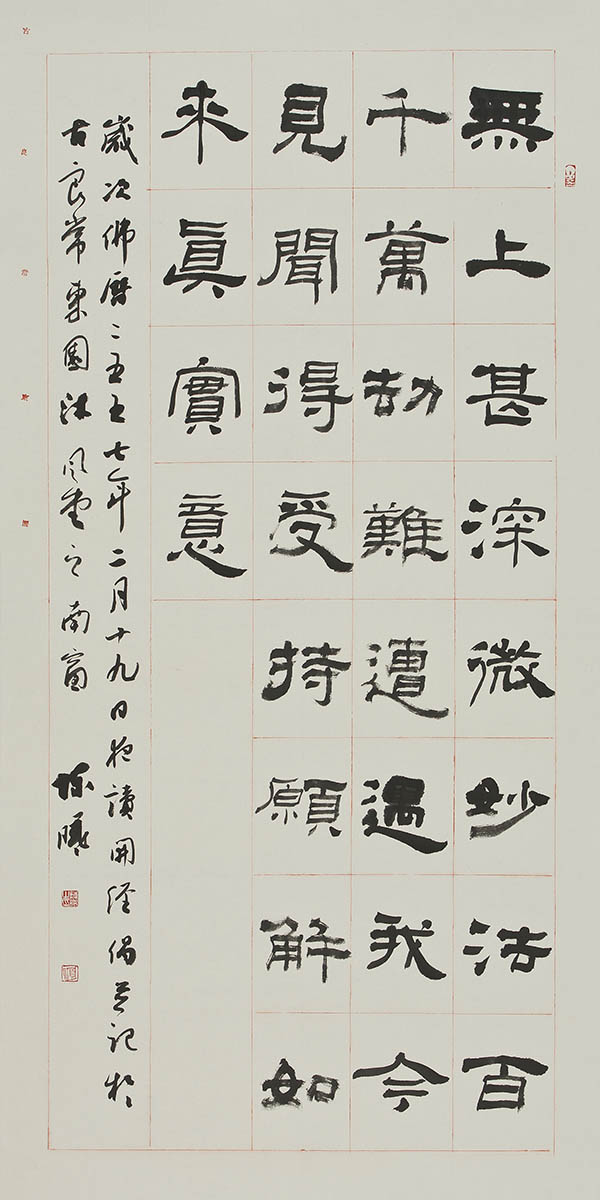 無上甚深微妙法百
千萬劫難遭遇我今
見聞得受持願解如
來眞實意
歲次佛曆二五五七年二月十九日夜讀開經偈並記於
古良常東園沐風堂之南窗
陳曦